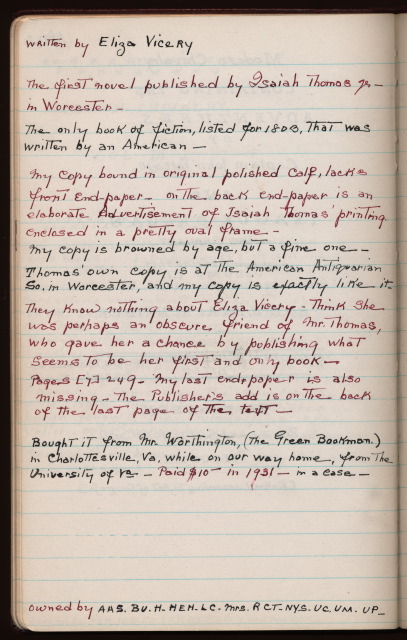 written by Eliza Vicery
The first novel published by Isaiah Thomas Jr. —
in Worcester —
The only book of fiction, listed for 1803, that was
written by an American —
My copy bound in original polished calf, lacks
front end-paper — on the back end-paper is an
elaborate Advertisement of Isaiah Thomas' printing
enclosed in a pretty oval frame —
My copy is browned by age, but a fine one —
Thomas' own copy is at the American Antiquarian
So. in Worcester, and my copy is exactly like it —
They know nothing about Eliza Vicery — Think she
was perhaps an obscure friend of Mr. Thomas,
who gave her a chance by publishing what
seems to be her first and only book —
Pages [7] 249 — My last end-paper is also
missing — The Publisher's add is on the back
of the last page of the text —
Bought it from Mr. Worthington, (The Green Bookman.)
in Charlottesville, Va, while on our way home, from the
University of Va — Paid $10— in 1931 — in a case —
owned by AAS. BU. H. HEH. LC. Mrs. R CT. NYS. UC. UM. UP.